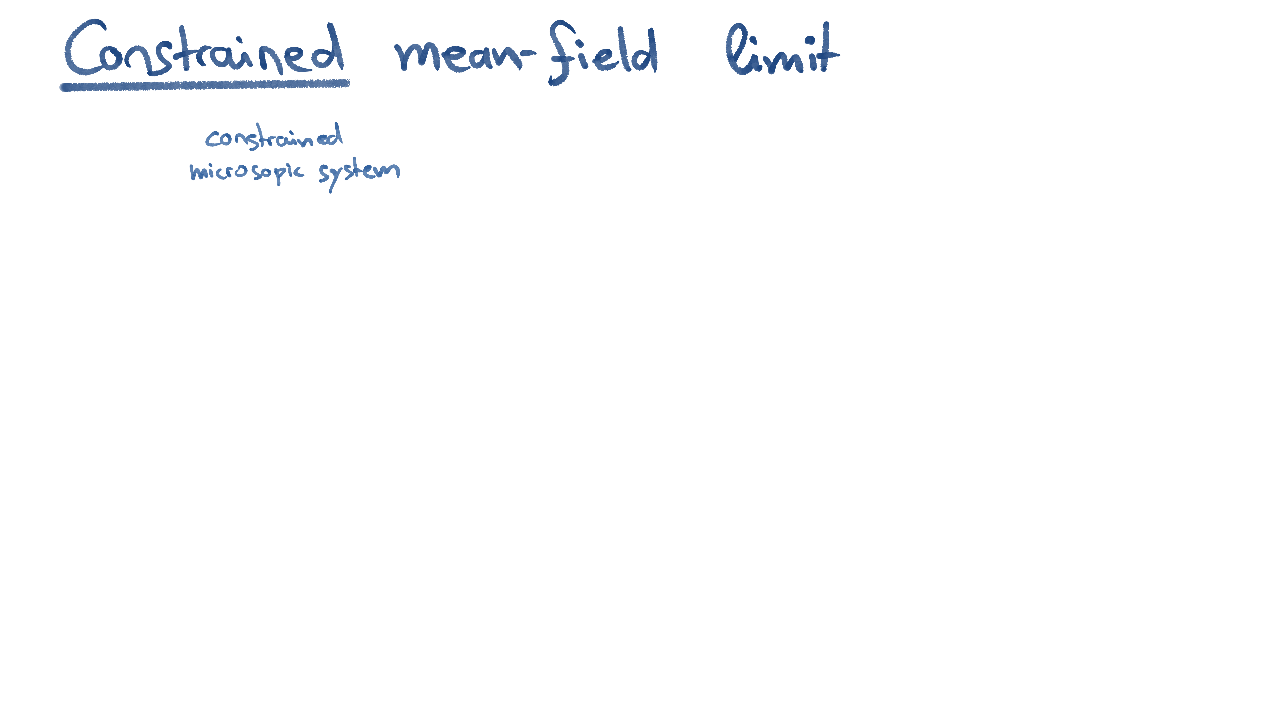 Constrained mean-field limit
constrained
microsopic system